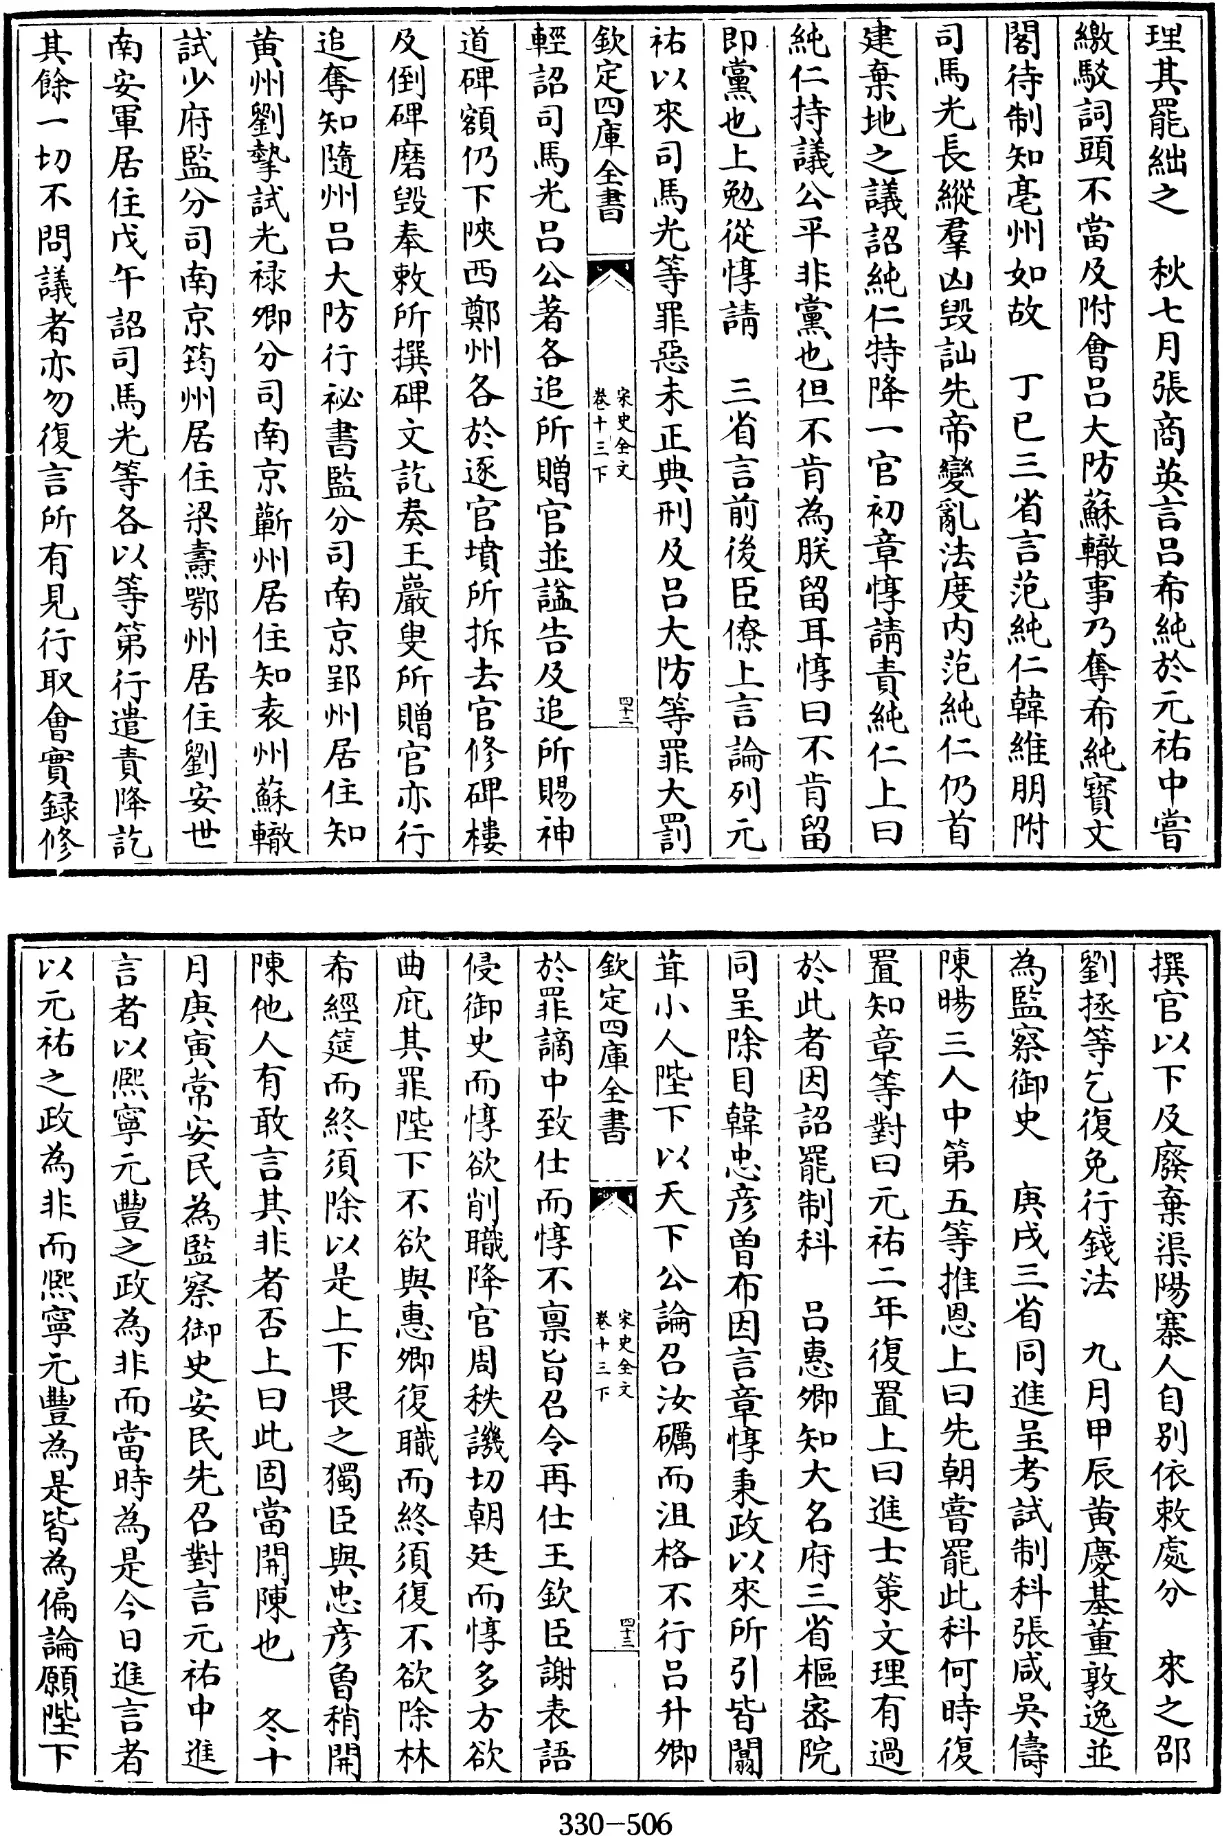 理其罷絀之　秋七月張商英言呂希純於元祐中嘗
繳駁詞頭不當及附會呂大防蘇轍事乃奪希純寳文
閣待制知亳州如故　丁巳三省言范純仁韓維朋附
司馬光長縱羣凶毀訕先帝變亂法度内范純仁仍首
建棄地之議詔純仁特降一官初章惇請責純仁上曰
純仁持議公平非黨也但不肯為朕留耳惇曰不肯留
即黨也上勉從惇請　三省言前後臣僚上言論列元
祐以來司馬光等罪惡未正典刑及呂大防等罪大罰
欽定四庫全書
宋史全文
卷十三下
四十二
輕詔司馬光呂公著各追所贈官並諡告及追所賜神
道碑額仍下陜西鄭州各於逐官墳所拆去官修碑樓
及倒碑磨毀奉敕所撰碑文訖奏王巖叟所贈官亦行
追奪知隨州呂大防行祕書監分司南京郢州居住知
黄州劉摯試光祿卿分司南京蘄州居住知袁州蘇轍
試少府監分司南京筠州居住梁燾鄂州居住劉安世
南安軍居住戊午詔司馬光等各以等第行遣責降訖
其餘一切不問議者亦勿復言所有見行取會實録修
撰官以下及廢棄渠陽寨人自别依敕處分　來之邵
劉拯等乞復免行錢法　九月甲辰黄慶基董敦逸並
為監察御史　庚戌三省同進呈考試制科張咸吳儔
陳暘三人中第五等推恩上曰先朝嘗罷此科何時復
置知章等對曰元祐二年復置上曰進士策文理有過
於此者因詔罷制科　呂惠卿知大名府三省樞密院
同呈除目韓忠彦曾布因言章惇秉政以來所引皆闒
茸小人陛下以天下公論召汝礪而沮格不行呂升卿
欽定四庫全書
宋史全文
卷十三下
四十三
於罪謫中致仕而惇不稟旨召令再仕王欽臣謝表語
侵御史而惇欲削職降官周秩譏切朝廷而惇多方欲
曲庇其罪陛下不欲與惠卿復職而終須復不欲除林
希經筵而終須除以是上下畏之獨臣與忠彦魯稍開
陳他人有敢言其非者否上曰此固當開陳也　冬十
月庚寅常安民為監察御史安民先召對言元祐中進
言者以熙寧元豐之政為非而當時為是今日進言者
以元祐之政為非而熙寧元豐為是皆為偏論願陛下
330-506